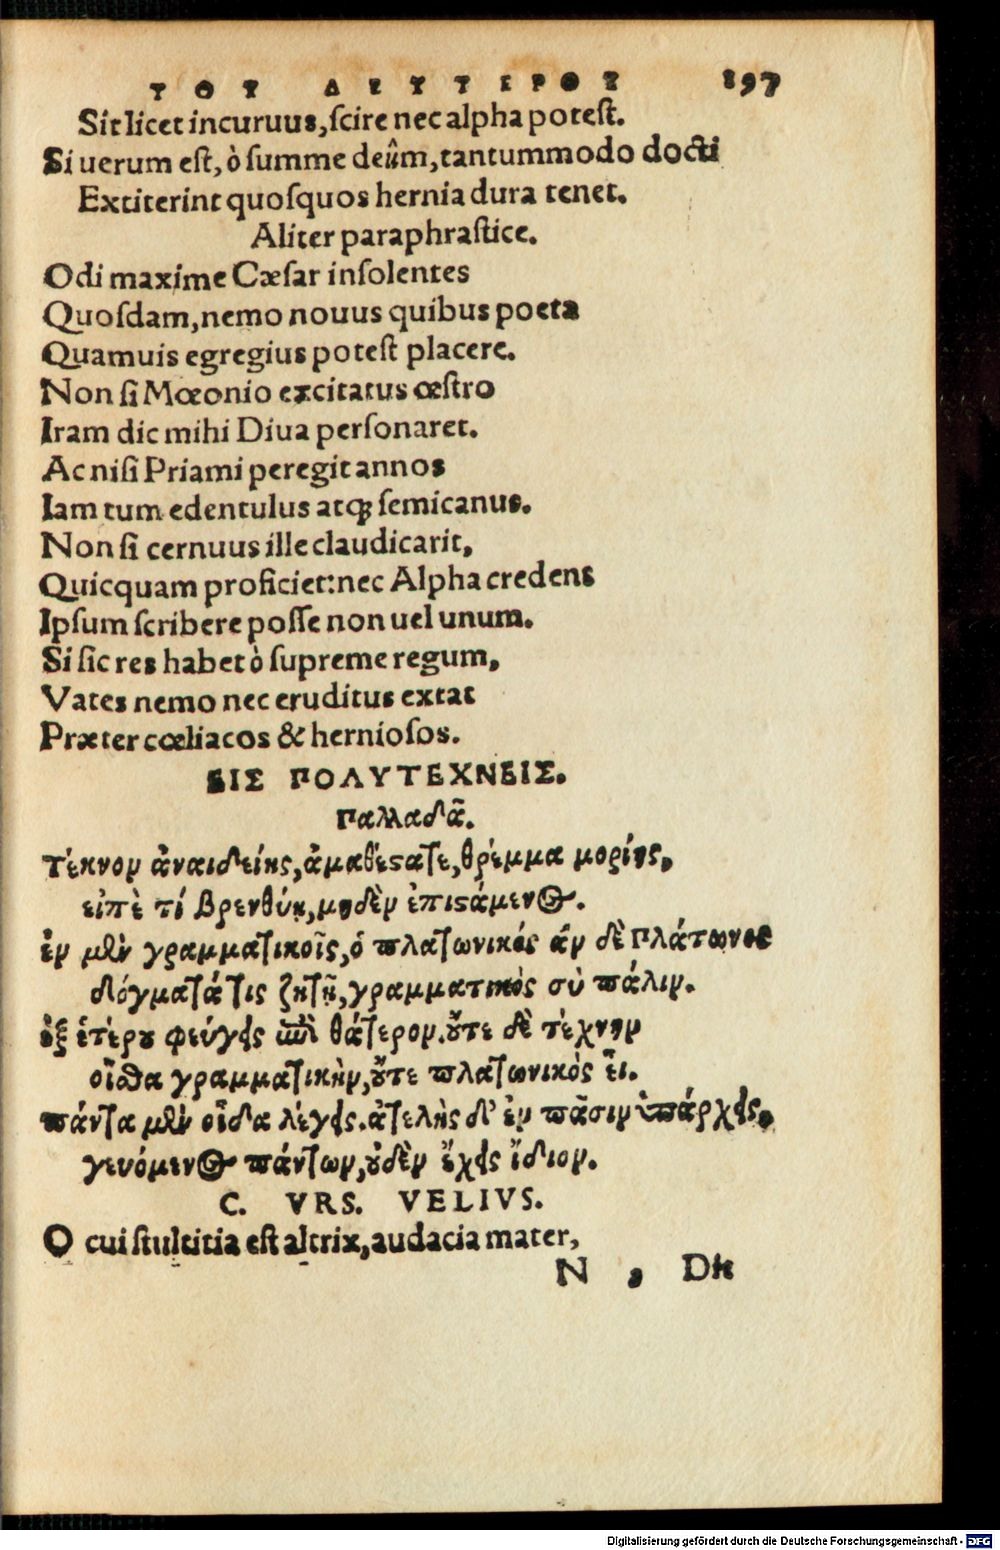 ΤΟΥ ΔΕΥΤΕΡΟΥ 197
Sit licet incuruus, ſcire nec alpha poteſt.
Si uerum eſt, ò ſumme deûm, tantummodo docti
Extiterint quoſquos hernia dura tenet.
Aliter paraphraſtice.
Odi maxime Cæſar inſolentes
Quoſdam, nemo nouus quibus poeta
Quamuis egregius poteſt placere.
Non ſi Mœonio excitatus œſtro
Iram dic mihi Diua perſonaret.
Ac niſi Priami peregit annos
Iam tum edentulus atqꝫ ſemicanus.
Non ſi cernuus ille claudicarit,
Quicquam proficiet: nec Alpha credens
Ipſum ſcribere poſſe non uel unum.
Si ſic res habet ò ſupreme regum,
Vates nemo nec eruditus extat
Præter cœliacos & hernioſos.
ΕΙΣ ΠΟΛΥΤΕΧΝΕΙΣ.
Παλλαδᾶ.
Τέκνον ἀναιδείης, ἀμαθέϛατε, θρέμμα μορίης,
εἰπὲ τί βρενθύῃ, μηδὲν ἐπιϛάμενος.
ἐν μὲν γραμματικοῖς, ὁ πλατωνικός ἂν δὲ Πλάτωνος
δόγματά τις ζητῇ, γραμματικὸς σὺ πάλιν.
ἐξ ἑτέρου φεύγεις ἐπὶ θάτερον. οὔτε δὲ τέχνην
οἶσθα γραμματικὴν, οὔτε πλατωνικὸς εἶ.
πάντα μὲν οἶδα λέγεις. ἀτελὴς δ' ἐν πᾶσιν ὑπάρχεις,
γευόμενος πάντων, οὐδὲν ἔχεις ἴδιον.
C. VRS. VELIVS.
O cui ſtultitia eſt altrix, audacia mater,
N , Dic
Digitalisierung gefördert durch die Deutsche Forschungsgemeinschaft - DFG